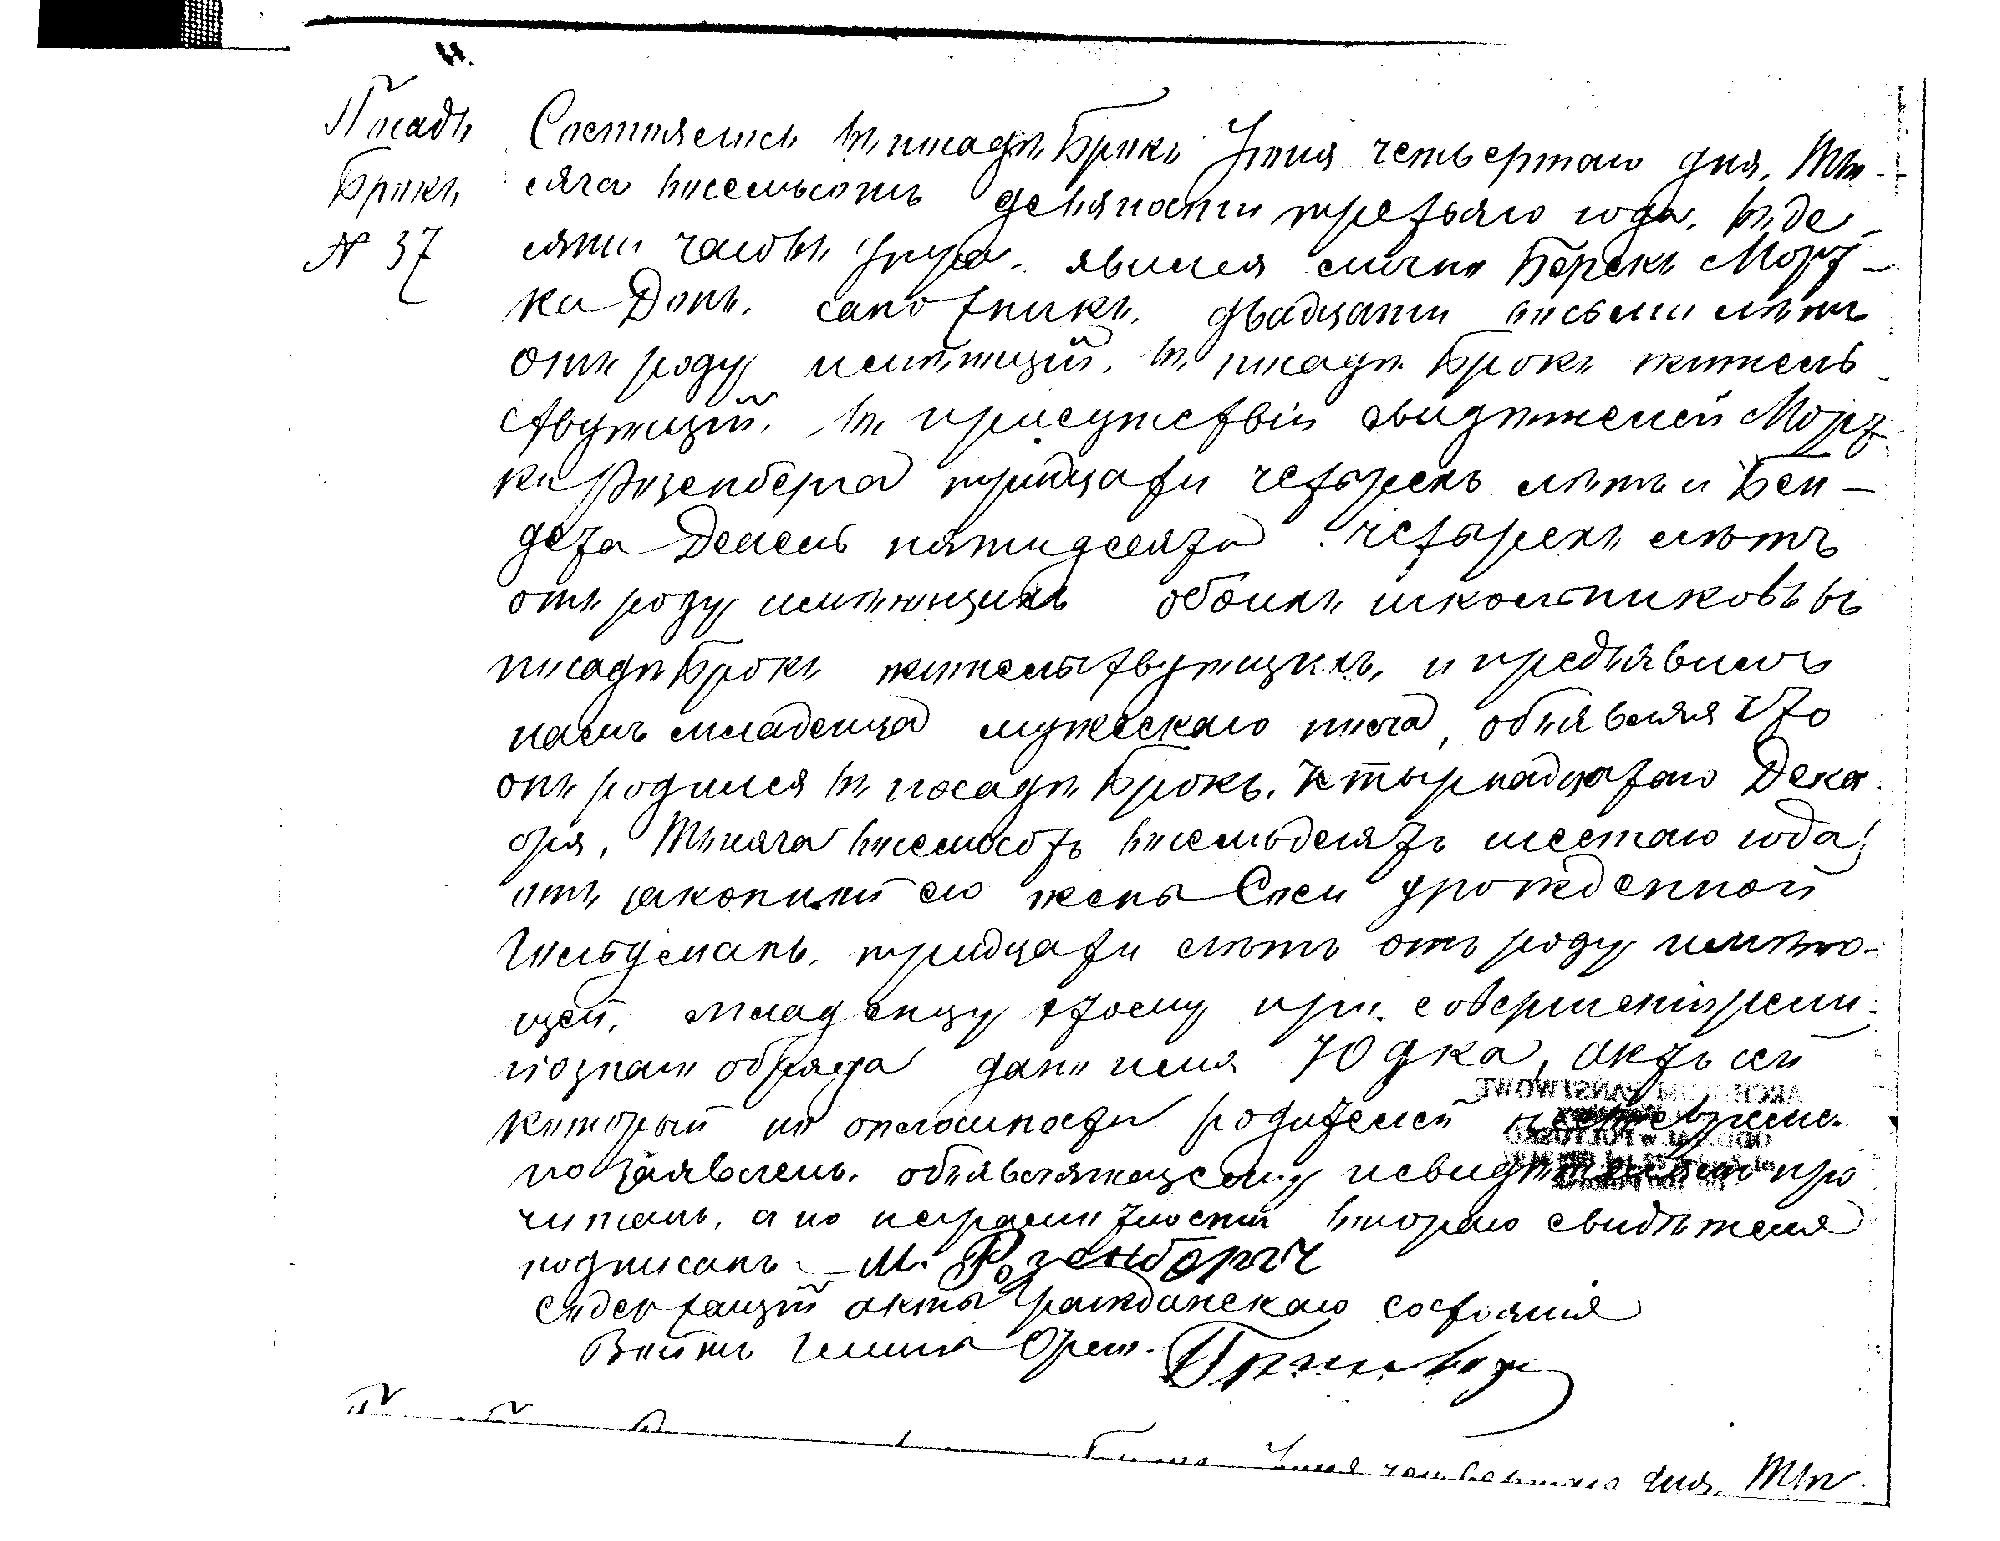 Посадъ
Брокъ
№ 37
Состоялось въ посадѣ Брокѣ Іюня четвертаго дня, Ты-
сяча восемьсотъ девяности третьяго года, въ де-
сять часовъ утра. явился лично Беркъ Морд-
ка Донъ, сапожникъ, двадцати восьми лѣтъ
отъ роду имѣющій, въ посадѣ Брокѣ житель-
ствующій, въ присутствіи свидѣтелей Морд-
ки Розенберга тридцати четырехъ лѣтъ и Бен-
дета пятидесяти четырехъ лѣтъ
отъ роду имѣющихъ обоихъ школьниковъ въ
посадѣ Брокѣ жительствующихъ, и предъявилъ
намъ младенца мужескаго пола, объявляя что
онъ родился въ посадѣ Брокѣ, четырнадцатаго Дека-
бря, Тысяча восемьсотъ восемьдесятъ шестаго года,
отъ законной его жены Соси урожденной
Гольдманъ, тридцати лѣтъ отъ роду имѣю-
щей, младенцу этому при совершеніи рели-
гіознаго обряда дано имя Юдка, актъ сей
который по оплошности родителей несвоевремен-
но заявленъ. объявляющему и свидѣтелямъ про
читанъ, а по неграмотности втораго свидѣтеля
подписанъ. – М. Розенбергъ
Содержащій акты гражданскаго состоянія
Войтъ Гмины Орло.
Брокѣ Іюня четвертаго дня, Ты